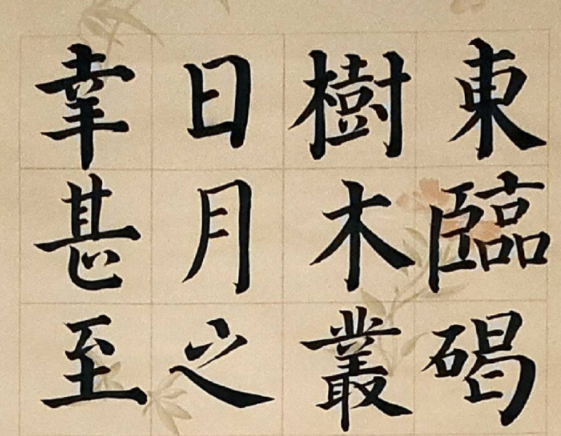 東臨碣
樹木叢
日月之
幸甚至